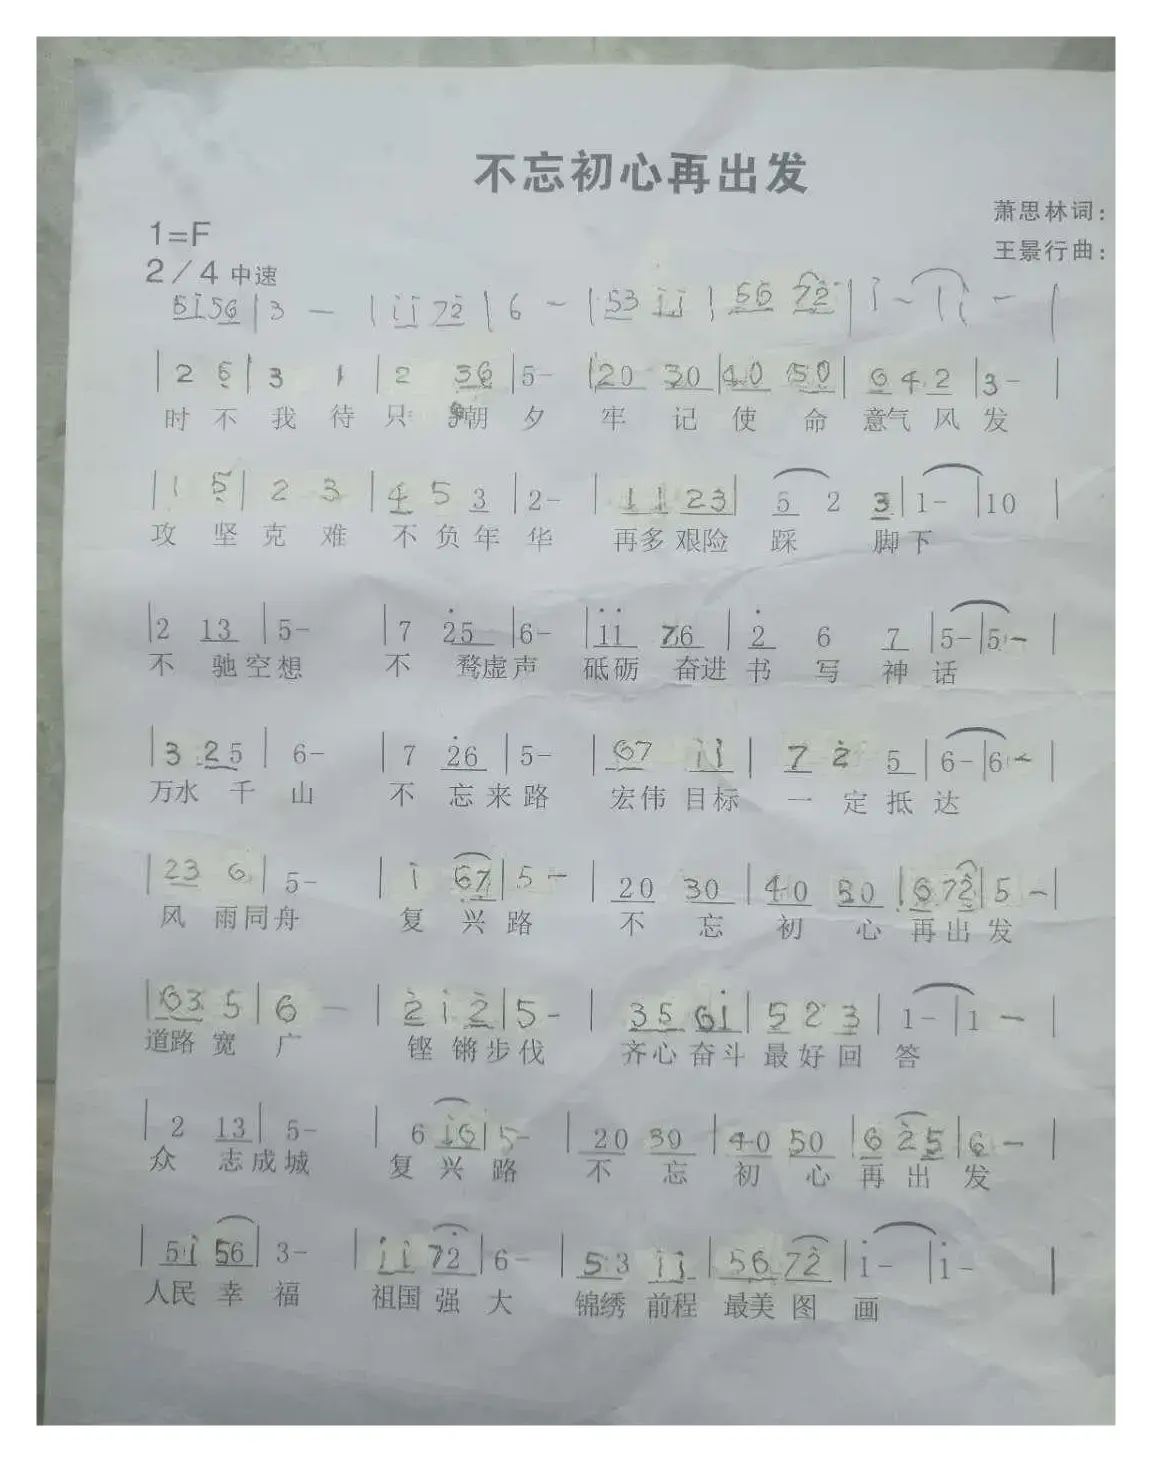 不忘初心再出发
萧思林词：
1=F
王景行曲：
2/4 中速
5i56|3 — |ii 72|6 — |53 ii|56 72|i — |i — |
|2 5|3 1|2 36|5-|20 30|40 50|6 4 2|3-|
时不我待只朝夕 牢记使命意气风发
|1 5|2 3|4 5 3|2-|11 23|5 2 3|1-|10|
攻坚克难不负年华 再多艰险踩脚下
|2 13|5-|7 2̇5|6-|i̇i̇ 76|2̇ 6 7|5-|5-|
不驰空想 不骛虚声 砥砺奋进书写神话
|3 25|6-|7 2̇6|5-|67 ii|7 2̇ 5|6-|6-|
万水千山 不忘来路 宏伟目标一定抵达
|23 6|5-|i 67|5-|20 30|40 50|6 72̇|5-|
风雨同舟 复兴路 不忘初心再出发
|63 5|6 —|2̇ i 2̇|5-|35 6i|5 2 3|1-|1-|
道路宽广 铿锵步伐 齐心奋斗最好回答
|2 13|5-|6 i6|5-|20 30|40 50|6 2̇5|6-|
众志成城 复兴路 不忘初心再出发
|5i 56|3-|ii 72̇|6-|53 ii|56 72̇|i-|i-|
人民幸福 祖国强大 锦绣前程最美图画